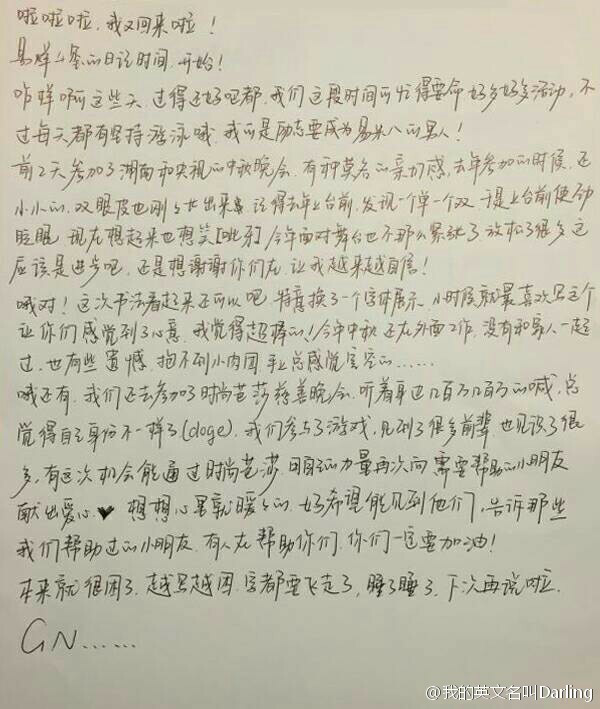 啦啦啦，我又回来啦！
易烊么叁的日记时间，开始！
咋样啊这些天，过得还好吧都，我们这段时间可忙得要命好多好多活动，不
过每天都有坚持游泳哦，我可是励志要成为易米八的男人！
前2天参加了湖南和央视的中秋晚会，有种莫名的亲切感，去年参加的时候，还
小小的，双眼皮也刚长出来，记得去年上台前，发现一个单一个双，于是上台前使劲
眨眼，现在想起来也想笑[呲牙]今年面对舞台也不那么紧张了放松了很多这
应该是进步吧，还是想谢谢你们在，让我越来越自信！
哦对！这次书法看起来还可以吧，特意换了一个字体展示，小时候就最喜欢写这个
让你们感觉到了心意，我觉得超棒的！今年中秋还在外面工作，没有和家人一起
过，也有些遗憾，抱不到小肉团，手上总感觉空空的……
哦还有，我们还去参加了时尚芭莎慈善晚会，听着身边几百万几百万的喊，总
觉得自己身份不一样了(doge)，我们参与了游戏，见到了很多前辈，也见识了很
多，有这次机会能通过时尚芭莎，明星的力量再次向需要帮助的小朋友
献出爱心❤想想心里就暖暖的，好希望能见到他们，告诉那些
我们帮助过的小朋友，有人在帮助你们，你们一定要加油！
本来就很困了，越写越困，字都要飞走了，睡了睡了，下次再说啦，
GN……
@我的英文名叫Darling